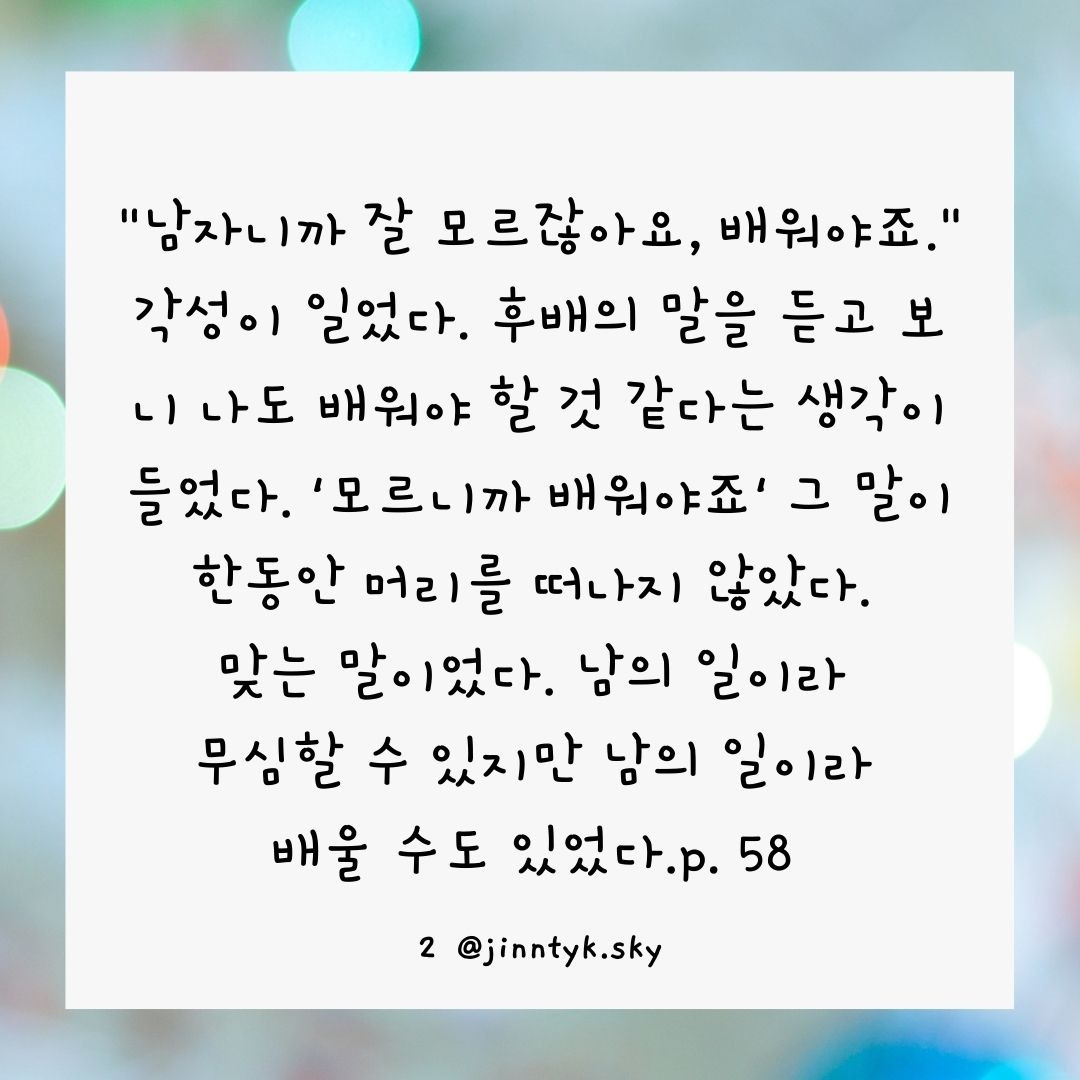 "남자니까 잘 모르잖아요, 배워야죠."
각성이 일었다. 후배의 말을 듣고 보
니 나도 배워야 할 것 같다는 생각이
들었다. '모르니까 배워야죠' 그 말이
한동안 머리를 떠나지 않았다.
맞는 말이었다. 남의 일이라
무심할 수 있지만 남의 일이라
배울 수도 있었다.p. 58
2 @jinntyk.sky